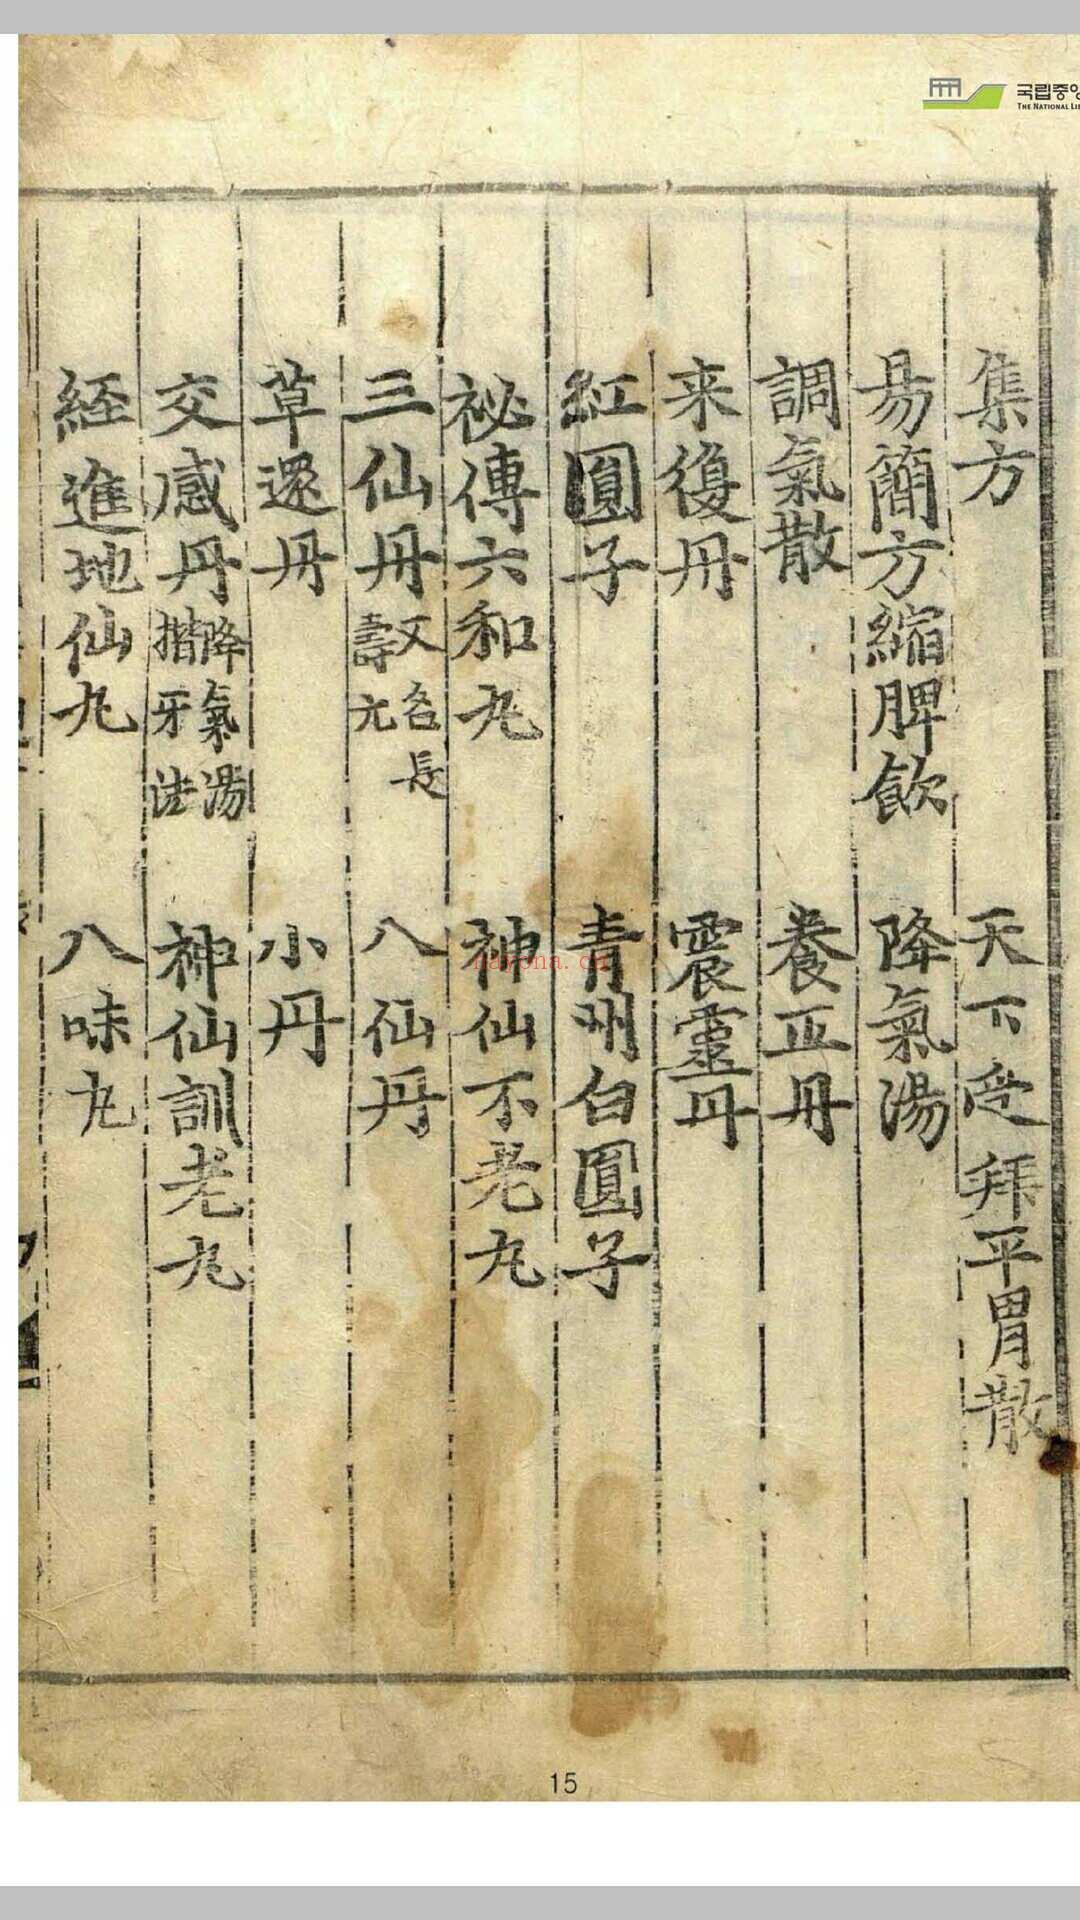 국립중앙
THE NATIONAL LI
集方 天下受拜平胃散
易簡方縮脾飲 降氣湯
調氣散 養正丹
来復丹 震靈丹
紅圓子 青州白圓子
祕傳六和丸 神仙不老丸
三仙丹 又名長壽元 八仙丹
草還丹 小丹
交感丹 降氣湯揩牙法 神仙訓老丸
経進地仙丸 八味丸
nayona.cn
15